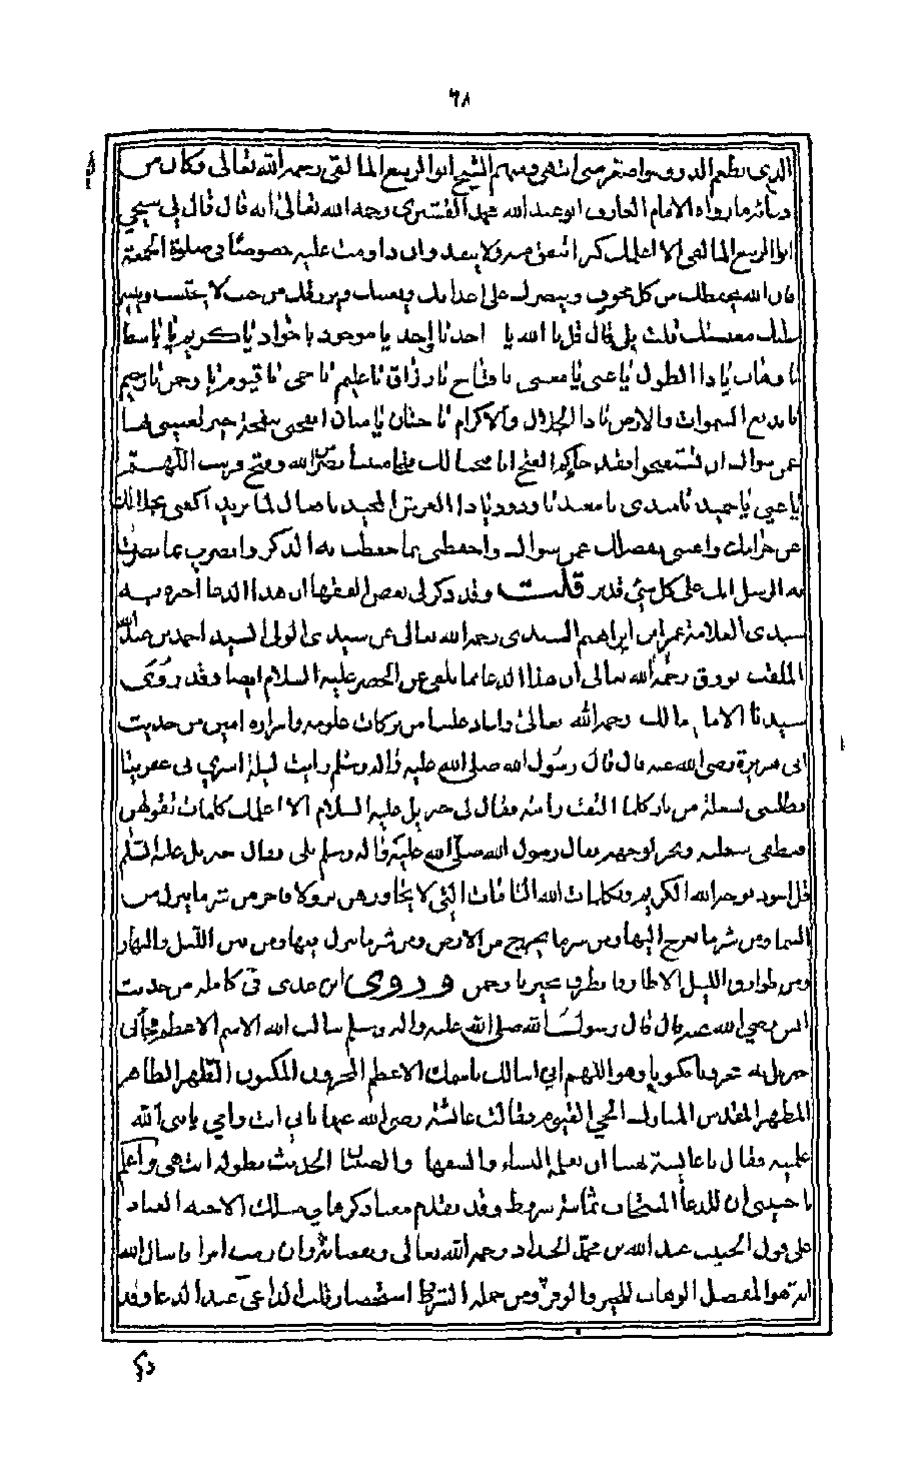 ٦٨
الذي نظم الدر وهو اصغر مني انتهى ومنهم الشيخ ابو الربيع المالقي رحمه الله تعالى وكان من
ما رواه الامام العارف ابو عبد الله محمد القشيري رحمه الله تعالى انه قال قال لي شيخي
ابو الربيع المالقي الا اعلمك كنزا تنفق منه ولا ينفد وان داومت عليه خصوصا في صلوة الجمعة
فان الله يحفظك من كل مخوف وينصرك على اعدائك ويغنيك ويرزقك من حيث لا يحتسب وييسر
عليك معيشتك قلت بلى قال قل يا الله يا احد يا واحد يا موجود يا جواد يا كريم يا باسط
يا وهاب يا ذا الطول يا غني يا مغني يا فتاح يا رزاق يا عليم يا حي يا قيوم يا رحمن يا رحيم
يا بديع السموات والارض يا ذا الجلال والاكرام يا حنان يا منان انفحني بنفحة خير تغنيني بها
عمن سواك ان تستفتحوا فقد جاءكم الفتح انا فتحنا لك فتحا مبينا نصر من الله وفتح قريب اللهم
يا غني يا حميد يا مبدي يا معيد يا ودود يا ذا العرش المجيد يا فعال لما يريد اكفني بحلالك
عن حرامك واغنني بفضلك عمن سواك واحفظني بما حفظت به الذكر وانصرني بما نصرت
به الرسل انك على كل شيء قدير قلت وقد ذكر لي بعض الفقهاء ان هذا الدعا اخبره به
سيدي العلامة عمر بن ابراهيم السندي رحمه الله تعالى عن سيدي الولي السيد احمد بن عبد الله
الملقب بورق رحمه الله تعالى ان هذا الدعا مما تلقي عن الخضر عليه السلام ايضا وقد روى
سيدنا الامام مالك رحمه الله تعالى واعاد علينا من بركات علومه واسراره امين من حديث
ابي هريرة رضي الله عنه قال قال رسول الله صلى الله عليه واله وسلم رايت ليلة اسري بي عفريتا
يطلبني بشعلة من نار كلما التفت رايته فقال لي جبريل عليه السلام الا اعلمك كلمات تقولهن
فتطفي شعلته ويخر لوجهه فقال رسول الله صلى الله عليه واله وسلم بلى فقال جبريل عليه السلم
قل اعوذ بوجه الله الكريم وبكلمات الله التامات التي لا يجاوزهن بر ولا فاجر من شر ما ينزل من
السما ومن شر ما يعرج اليها ومن شر ما يخرج من الارض ومن شر ما ينزل فيها ومن فتن الليل والنهار
ومن طوارق الليل الا طارقا يطرق بخير يا رحمن وروى ابن عدي في كامله من حديث
انس رضي الله عنه قال قال رسول الله صلى الله عليه واله وسلم سالت الله الاسم الاعظم فجاني
جبريل به مخزونا مكنونا وهو اللهم اني اسالك باسمك الاعظم المخزون المكنون الطاهر
المطهر المقدس المبارك الحي القيوم فقالت عائشة رضي الله عنها بابي انت وامي يا نبي الله
علمنيه فقال يا عائشة نهينا ان نعلمه النساء والسفها والصبيان الحديث بطوله انتهى واعلم
يا حبيبي ان للدعا المستجاب شروط وقد تقدم ذكرها
على قول الحبيب عبد الله بن محمد الحداد رحمه الله تعالى فاسال الله
انه هو المتفضل الوهاب للخير ومن جملة الشرط استحضار قلب الداعي عند الدعا وقد